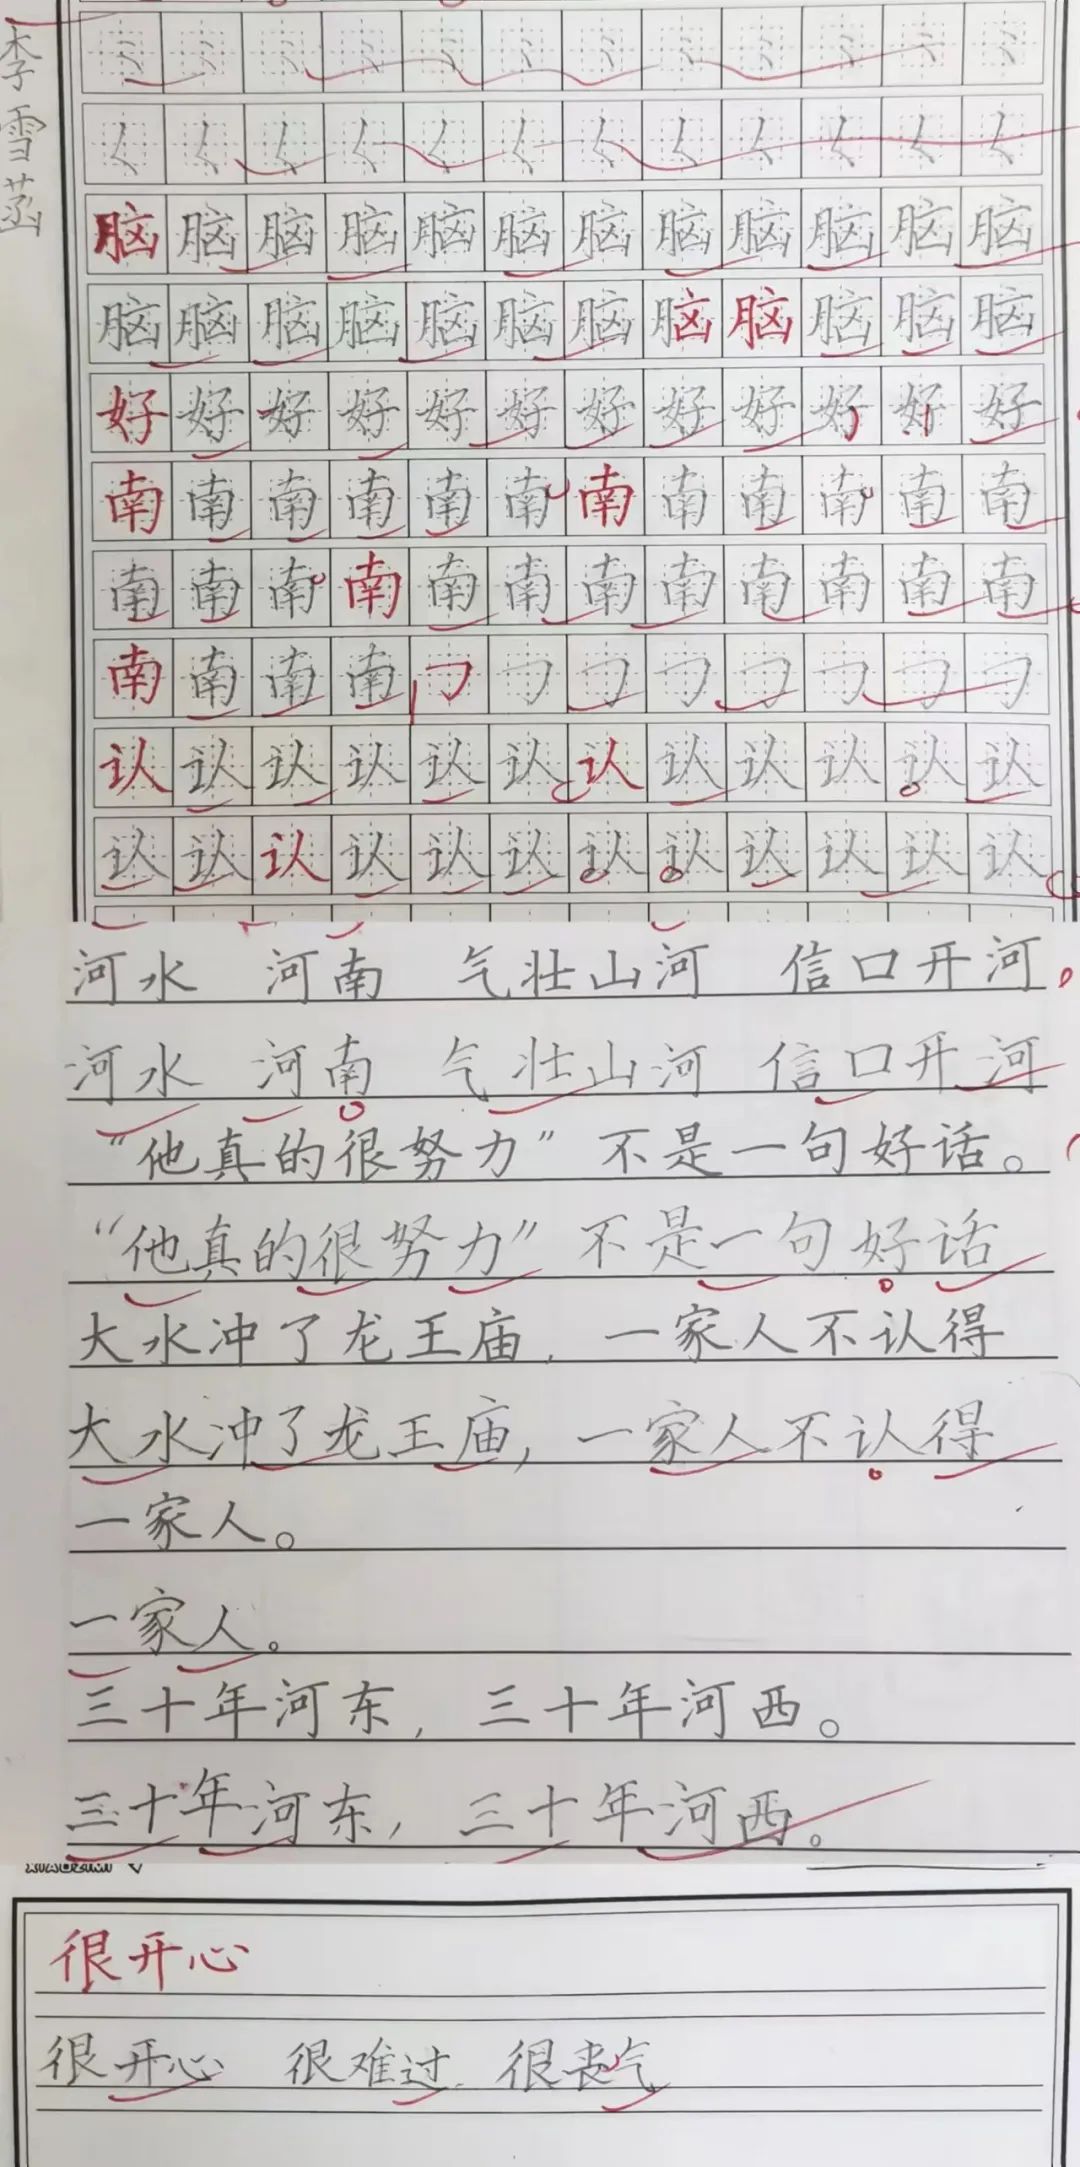 李雪菡
脑脑脑脑脑脑脑脑脑脑脑脑
脑脑脑脑脑脑脑脑脑脑脑脑
好好好好好好好好好好好好
南南南南南南南南南南南南
南南南南南南南南南南南南
南南南南
认认认认认认认认认认认认
认认认认认认认认认认认认
河水 河南 气壮山河 信口开河
河水 河南 气壮山河 信口开河
“他真的很努力”不是一句好话。
“他真的很努力”不是一句好话
大水冲了龙王庙,一家人不认得
大水冲了龙王庙,一家人不认得
一家人。
一家人。
三十年河东,三十年河西。
三十年河东,三十年河西。
很开心
很开心 很难过 很丧气